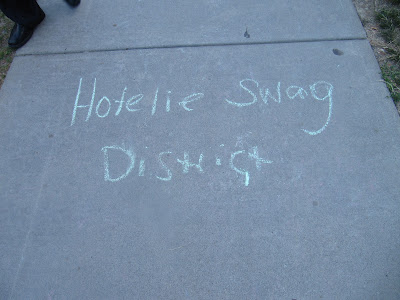 Hotelie Swag
District